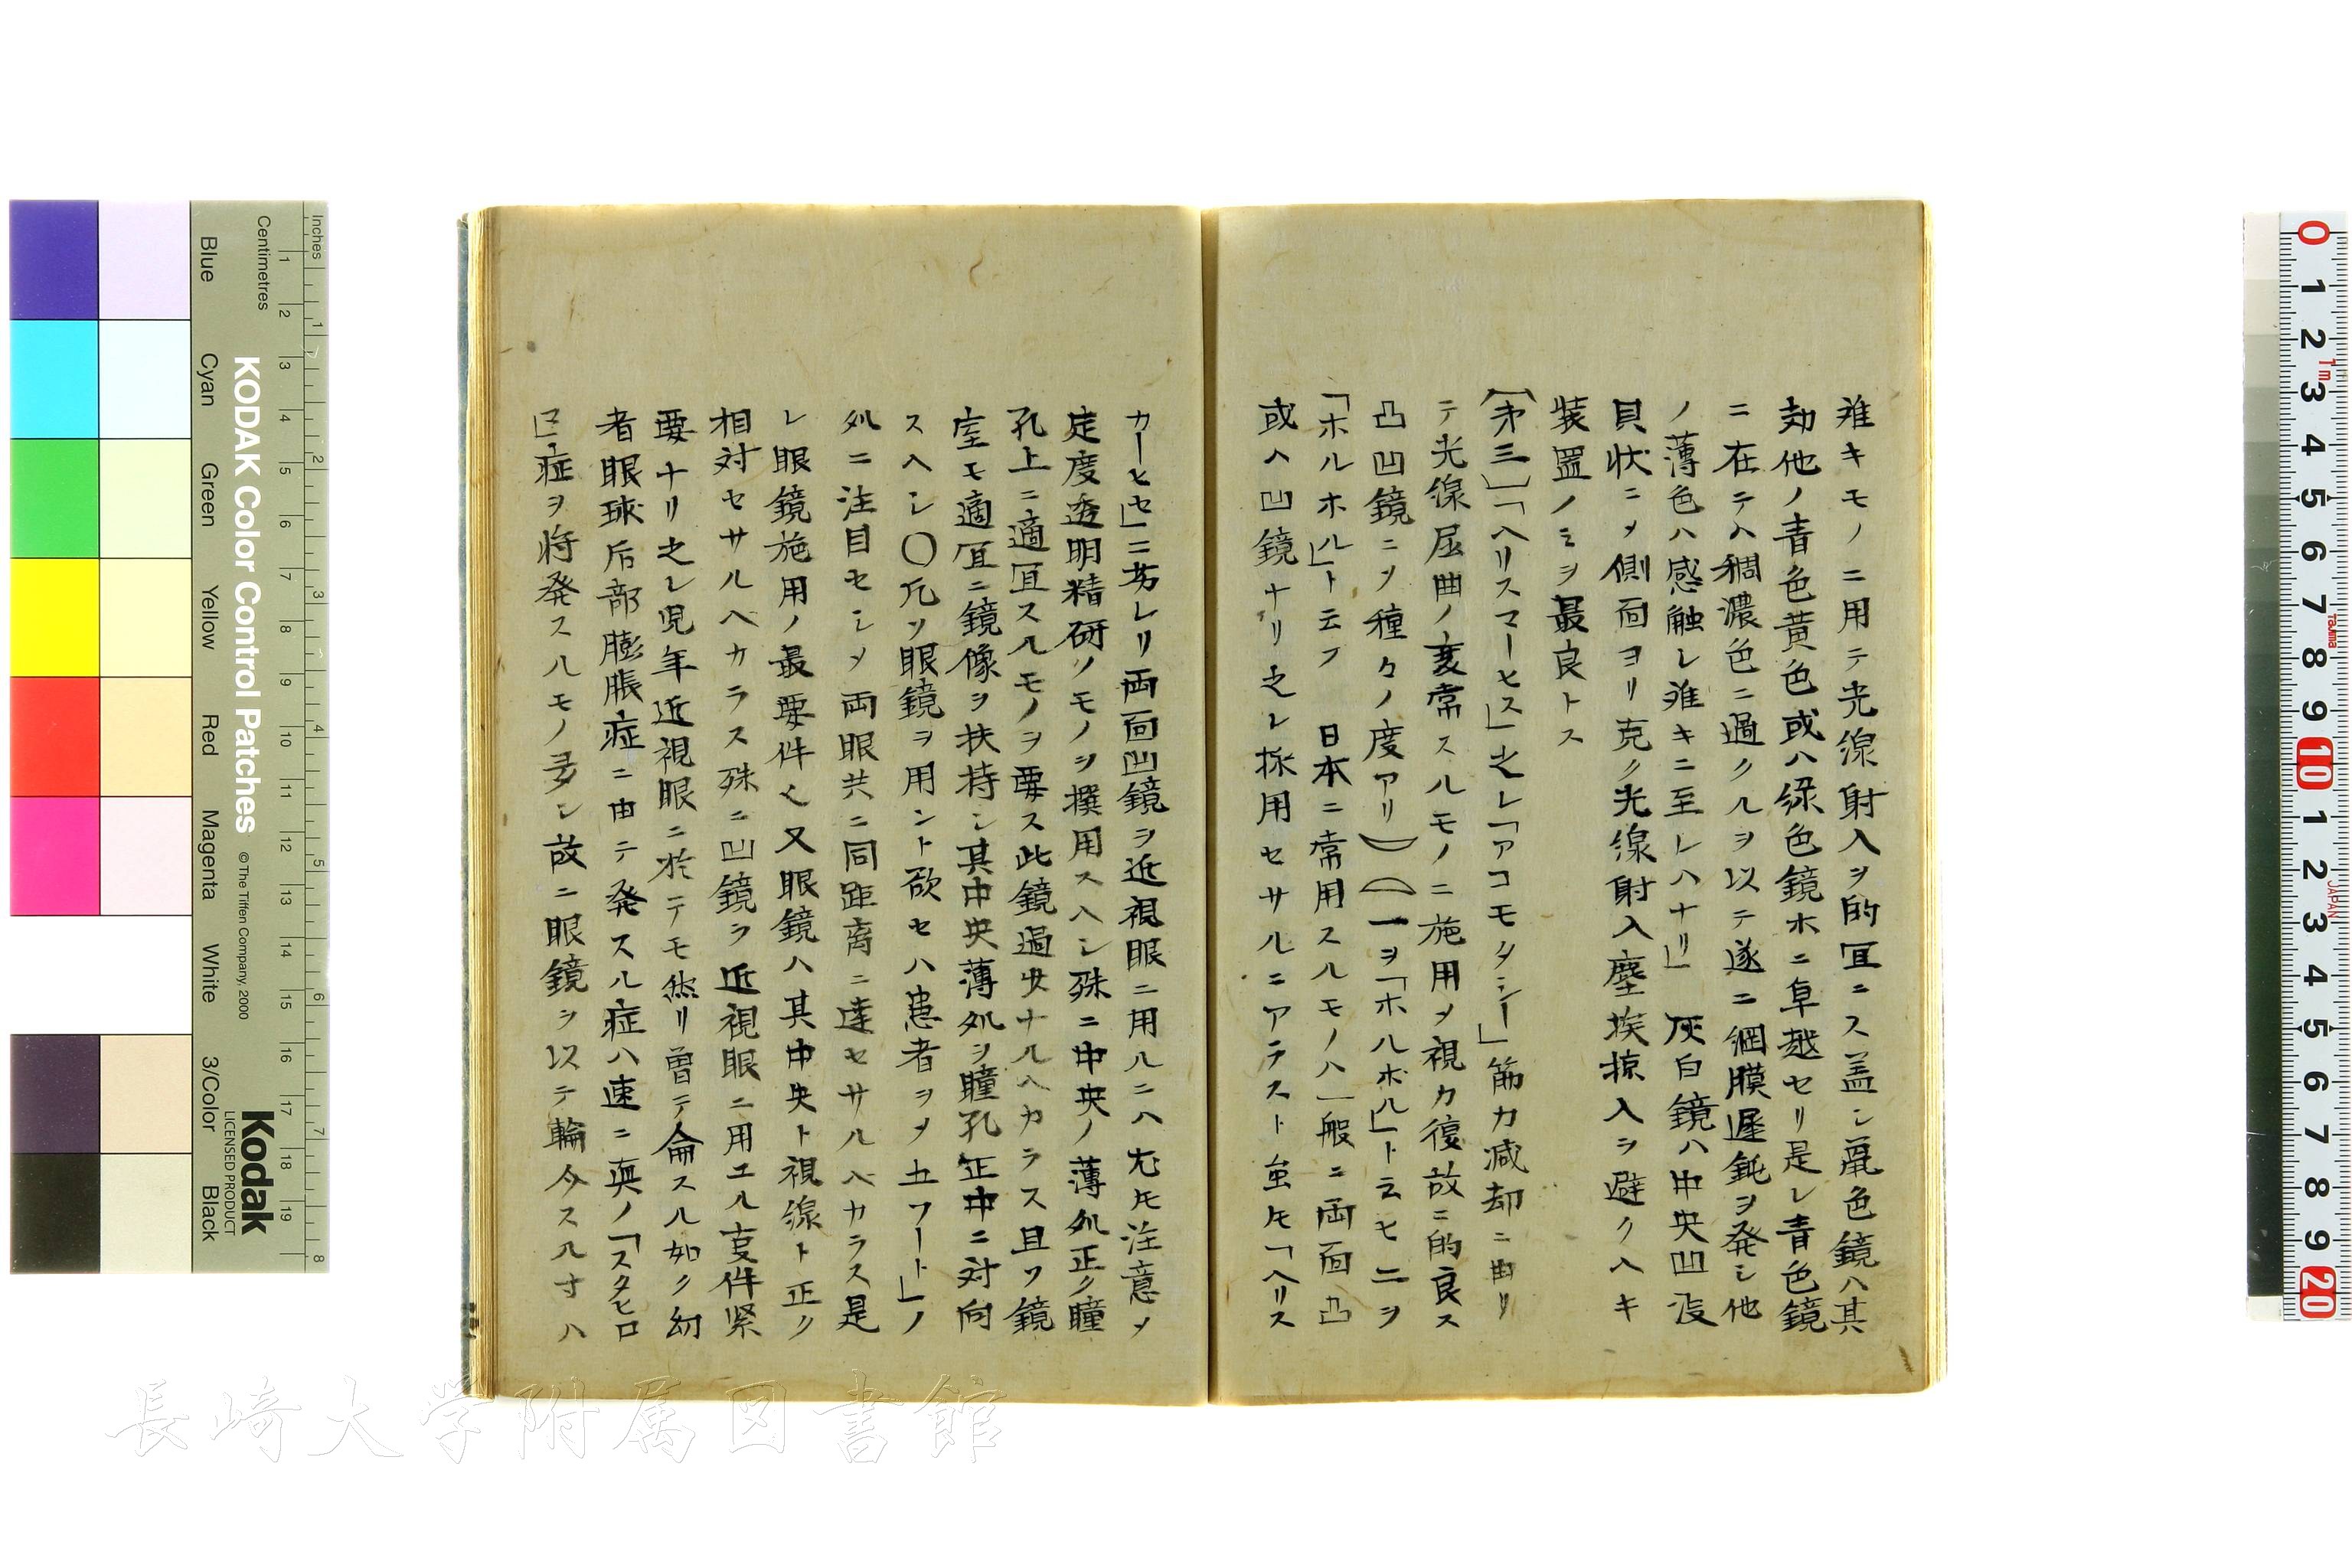 難キモノニ用テ光線射入ヲ的冝ニス盖シ扁色鏡ハ其
効他ノ青色黄色或ハ緑色鏡ホニ卓越セリ是レ青色鏡
ニ在テハ稠濃色ニ過クルヲ以テ遂ニ網膜遅鈍ヲ発シ他
ノ薄色ハ感触レ難キニ至レハナリ」灰白鏡ハ中央凹没
貝状ニ〆側面ヨリ克ク光線射入塵埃掠入ヲ避クヘキ
装置ノミヲ最良トス
(第三)「ヘリスマーヒス」之レ「アコモタシー」筋力減却ニ由リ
テ光線屈曲ノ変常スルモノニ施用〆視力復故ニ的良ス
凸凹鏡ニ〆種々ノ度アリ 一ヲ「ホルボル」ト云ヒ二ヲ
「ホルホル」ト云フ 日本ニ常用スルモノハ一般ニ両面凸
或ヘ凹鏡ナリ之レ採用セサルニアラスト虽𪜈「ヘリス
カーヒセ」ニ劣レリ両面凹鏡ヲ近視眼ニ用ルニハ尤𪜈注意〆
定度透明精研ノモノヲ撰用スヘシ殊ニ中央ノ薄処正ク瞳
孔上ニ適冝スルモノヲ要ス此鏡過少ナルヘカラス且ツ鏡
室モ適冝ニ鏡像ヲ扶持シ其中央薄処ヲ瞳孔正中ニ対向
スヘシ〇凡ソ眼鏡ヲ用ント欲セハ患者ヲ〆五フート」ノ
処ニ注目セシ〆両眼共ニ同距离ニ達セサルヘカラス是
レ眼鏡施用ノ最要件也又眼鏡ハ其中央ト視線ト正ク
相対セサルヘカラス殊ニ凹鏡ヲ近視眼ニ用エル亥件緊
要ナリ之レ児年近視眼ニ於テモ然リ曽テ侖スル如ク幼
者眼球后部膨脹症ニ由テ発スル症ハ速ニ真ノ「スタヒロ
マ」症ヲ将発スルモノ多シ故ニ眼鏡ヲ以テ輪今スル寸ハ
Blue
Cyan
Green
Yellow
Red
Magenta
White
3/Color
Black
Inches
Centimetres
KODAK Color Control Patches
©The Tiffen Company, 2000
Kodak
LICENSED PRODUCT
長崎大学附属図書館